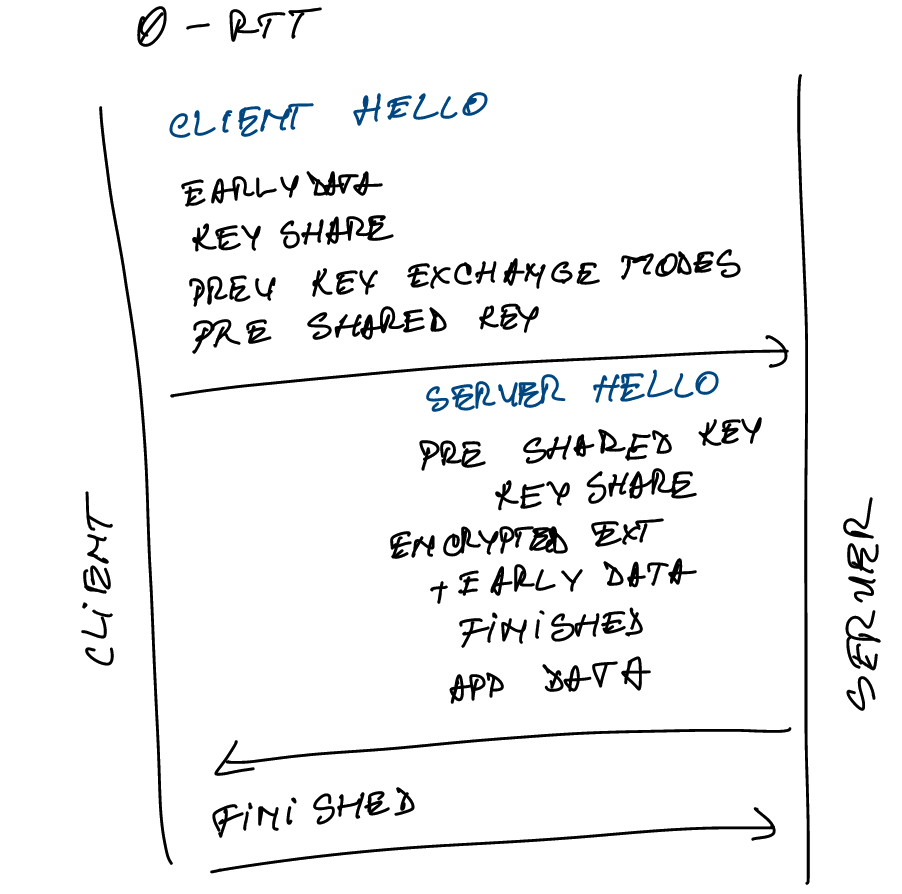 0 - RTT
CLIENT HELLO
EARLY DATA
KEY SHARE
KEY EXCHANGE MODES
PRE SHARED KEY
SERVER HELLO
PRE SHARED KEY
KEY SHARE
ENCRYPTED EXT
+ EARLY DATA
FINISHED
APP DATA
FINISHED
CLIENT
SERVER